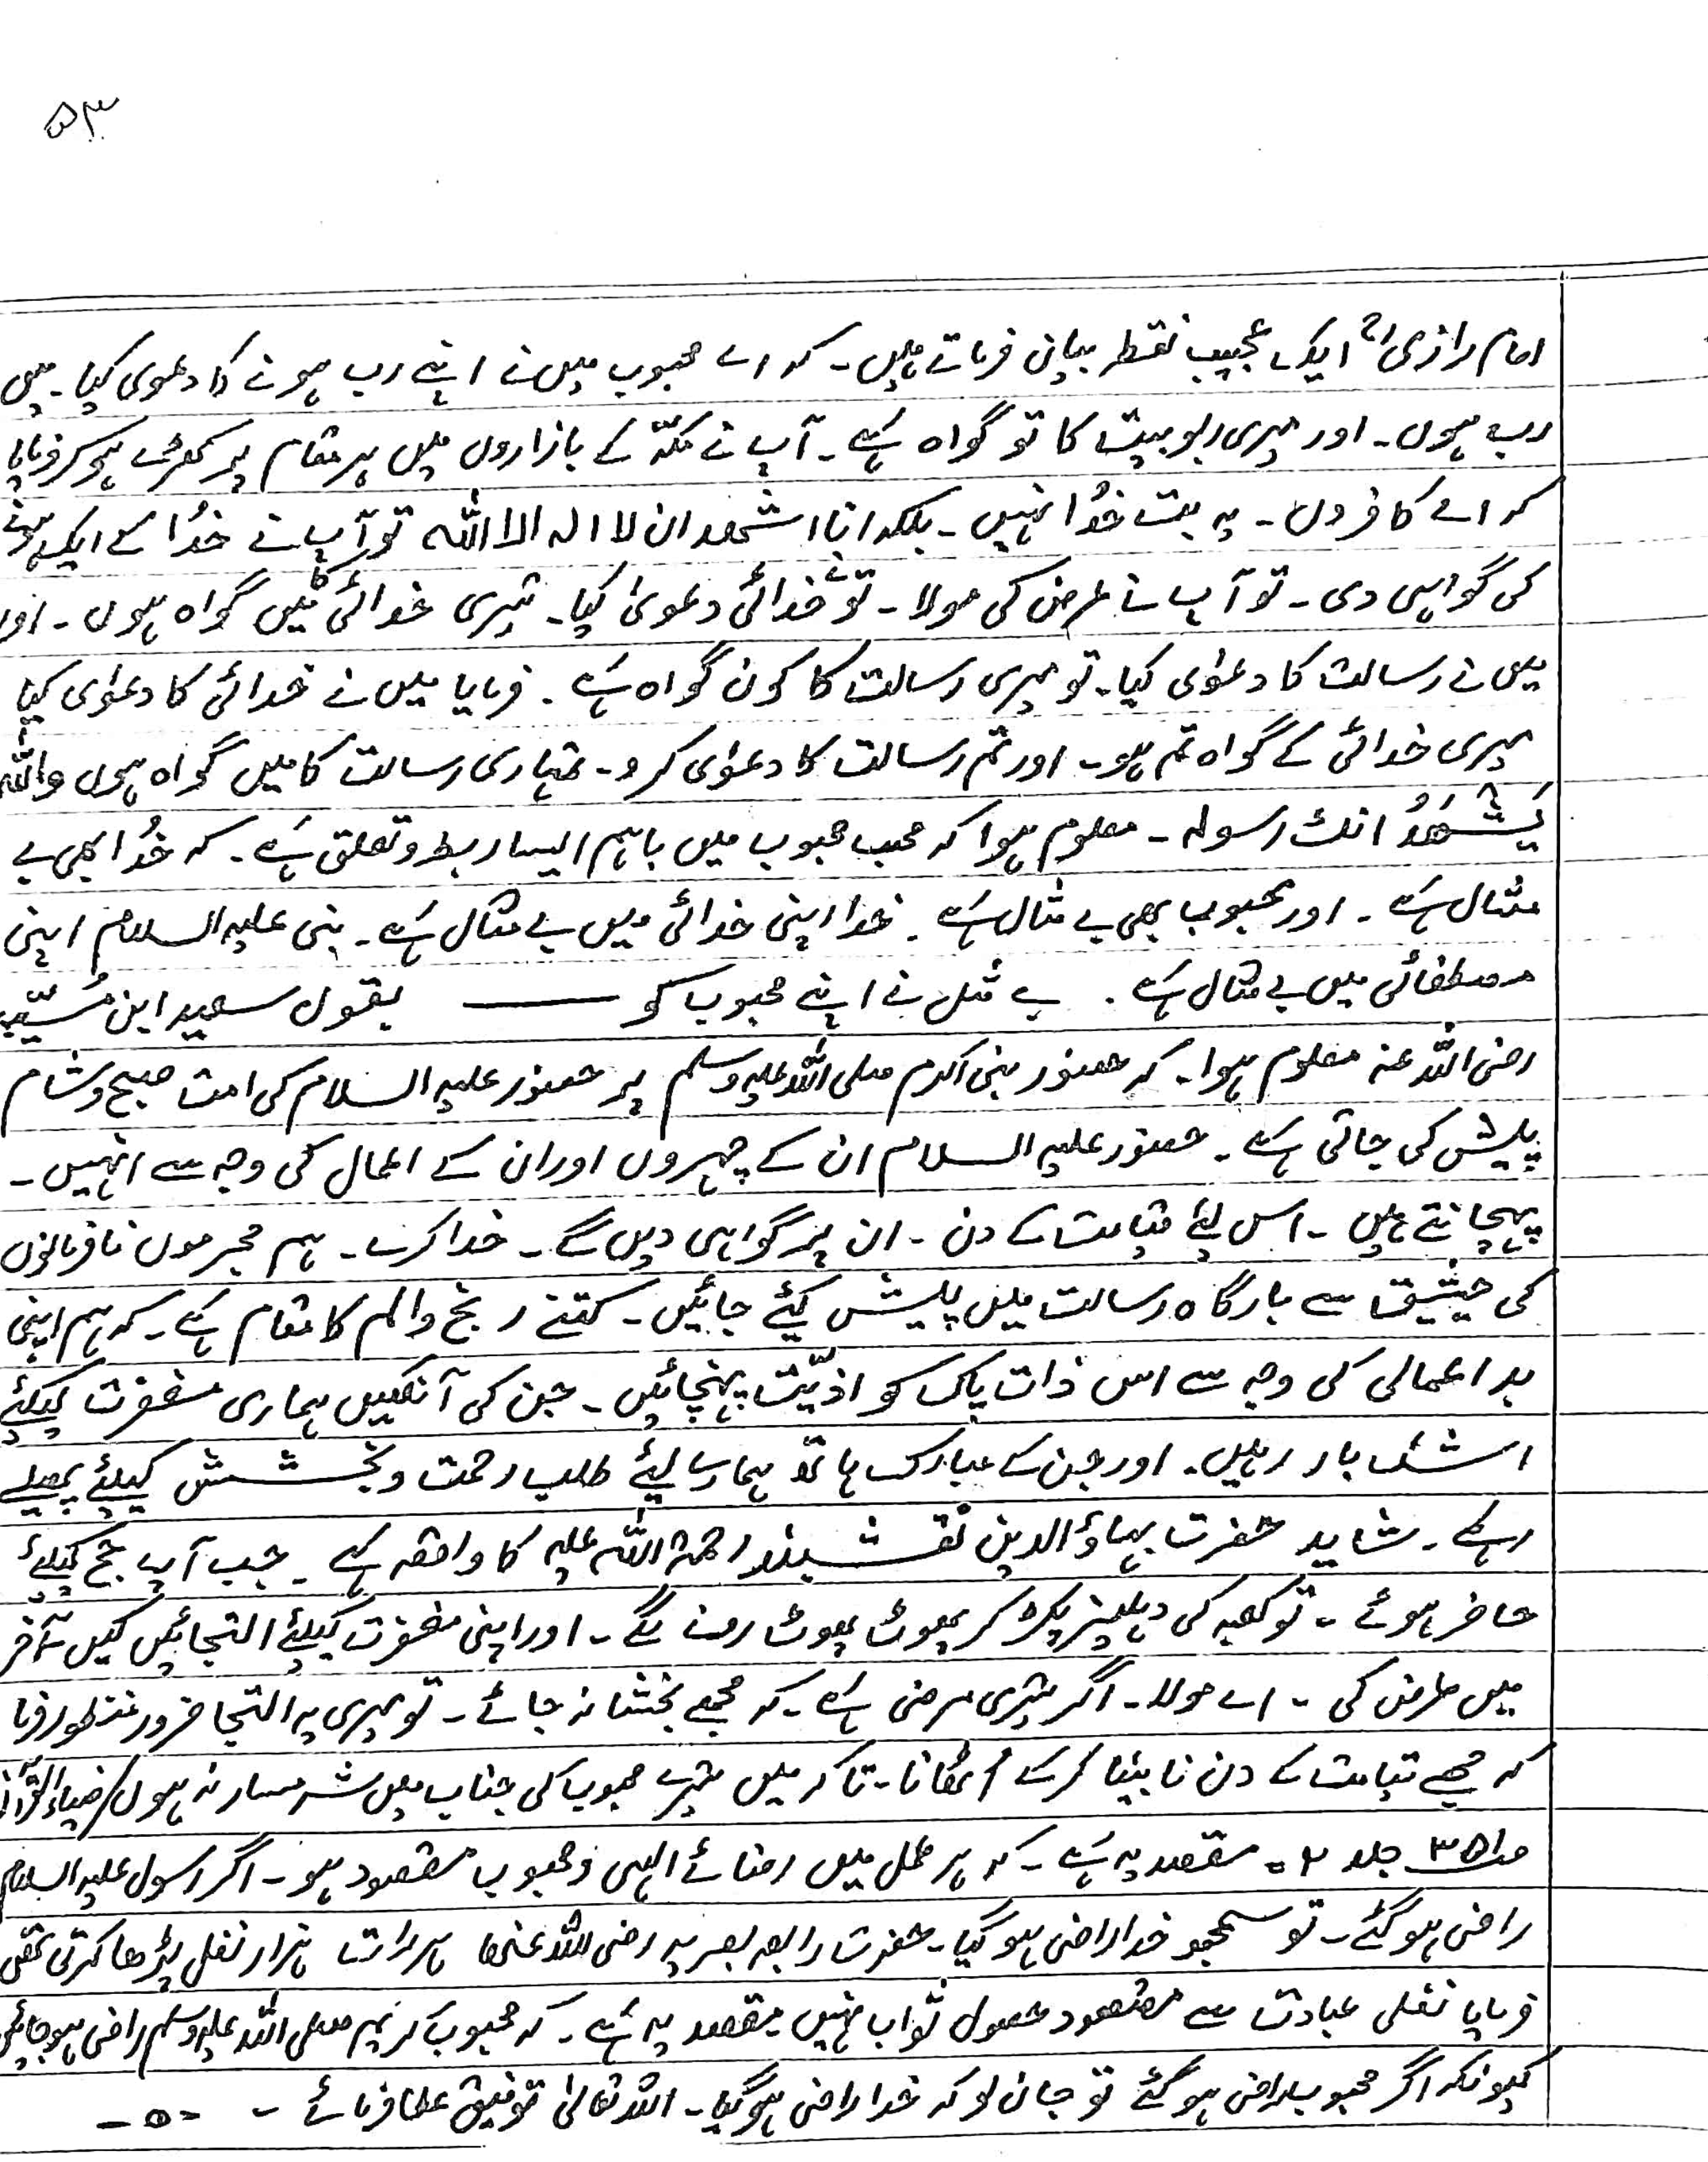 ۵۳
امام رازیؒ ایک عجیب نقطہ بیان فرماتے ہیں۔ کہ اے محبوب میں نے اپنے رب ہونے کا دعوی کیا۔ میں
رب ہوں۔ اور میری ربوبیت کا تو گواہ ہے۔ آپ نے مکّہ کے بازاروں میں ہر مقام پر کھڑے ہو کر فرمایا
کہ اے کافروں۔ یہ بت خُدا نہیں۔ بلکہ انا اشھد ان لا الہ الا اللہ تو آپ نے خُدا کے ایک ہونے
کی گواہی دی۔ تو آپ نے عرض کی مولا۔ تو نے خدائی دعویٰ کیا۔ تیری خدائی کا میں گواہ ہوں۔ اور
میں نے رسالت کا دعوٰی کیا۔ تو میری رسالت کا کون گواہ ہے۔ فرمایا میں نے خدائی کا دعوٰی کیا
میری خدائی کے گواہ تم ہو۔ اور تم رسالت کا دعوٰی کرو۔ تمہاری رسالت کا میں گواہ ہوں واللہ
یَشْھَدُ انک رسولہ۔ معلوم ہوا کہ محب محبوب میں باہم ایسا ربط و تعلق ہے۔ کہ خُدا بھی بے
مثال ہے۔ اور محبوب بھی بے مثال ہے۔ خدا اپنی خدائی میں بے مثال ہے۔ نبی علیہ السلام اپنی
مصطفائی میں بے مثال ہے۔ بے مثل نے اپنے محبوب کو ــــــ بقول سعید ابن مُسیّب
رضی اللہ عنہ معلوم ہوا۔ کہ حضور نبی اکرم صلی اللہ علیہ وسلم پر حضور علیہ السلام کی امت صبح و شام
پیش کی جاتی ہے۔ حضور علیہ السلام ان کے چہروں اور ان کے اعمال کی وجہ سے انہیں۔
پہچانتے ہیں۔ اس لئے قیامت کے دن۔ ان پر گواہی دیں گے۔ خدا کرے۔ ہم مجرموں نافرمانوں
کی حیثیت سے بارگاہ رسالت میں پیش کیئے جائیں۔ کتنے رنج و الم کا مقام ہے۔ کہ ہم اپنی
بد اعمالی کی وجہ سے اس ذات پاک کو اذیّت پہنچائیں۔ جن کی آنکھیں ہماری مغفرت کیلئے
اشک بار رہیں۔ اور جن کے مبارک ہاتھ ہمارے لیئے طلب رحمت و بخشش کیلئے پھیلے
رہے۔ شاید حضرت بہاؤالدین نقشبند رحمۃ اللہ علیہ کا واقعہ ہے۔ جب آپ حج کیلئے
حاضر ہوئے۔ تو کعبہ کی دہلیز پکڑ کر پھوٹ پھوٹ رونے لگے۔ اور اپنی مغفرت کیلئے التجائیں کیں آخر
میں عرض کی۔ اے مولا۔ اگر تیری مرضی ہے۔ کہ مجھے بخشا نہ جائے۔ تو میری یہ التجا ضرور منظور فرما
کہ مجھے قیامت کے دن نابینا کر کے اُٹھانا۔ تاکہ میں تیرے محبوب کی جناب میں شرمسار نہ ہوں ضیاءالقرآن
جلد ۲۔ مقصد یہ ہے۔ کہ ہر عمل میں رضائے الہی و محبوب مقصود ہو۔ اگر رسول علیہ السلام
راضی ہو گئے۔ تو سمجھو خدا راضی ہو گیا۔ حضرت رابعہ بصریہ رضی اللہ عنہا ہر رات ہزار نفل پڑھا کرتی تھی
فرمایا نفلی عبادت سے مقصود حصول ثواب نہیں مقصد یہ ہے۔ کہ محبوب کریم صلی اللہ علیہ وسلم راضی ہو جائیں
کیونکہ اگر محبوب راضی ہو گئے تو جان لو کہ خدا راضی ہو گیا۔ اللہ تعالیٰ توفیق عطا فرمائے۔